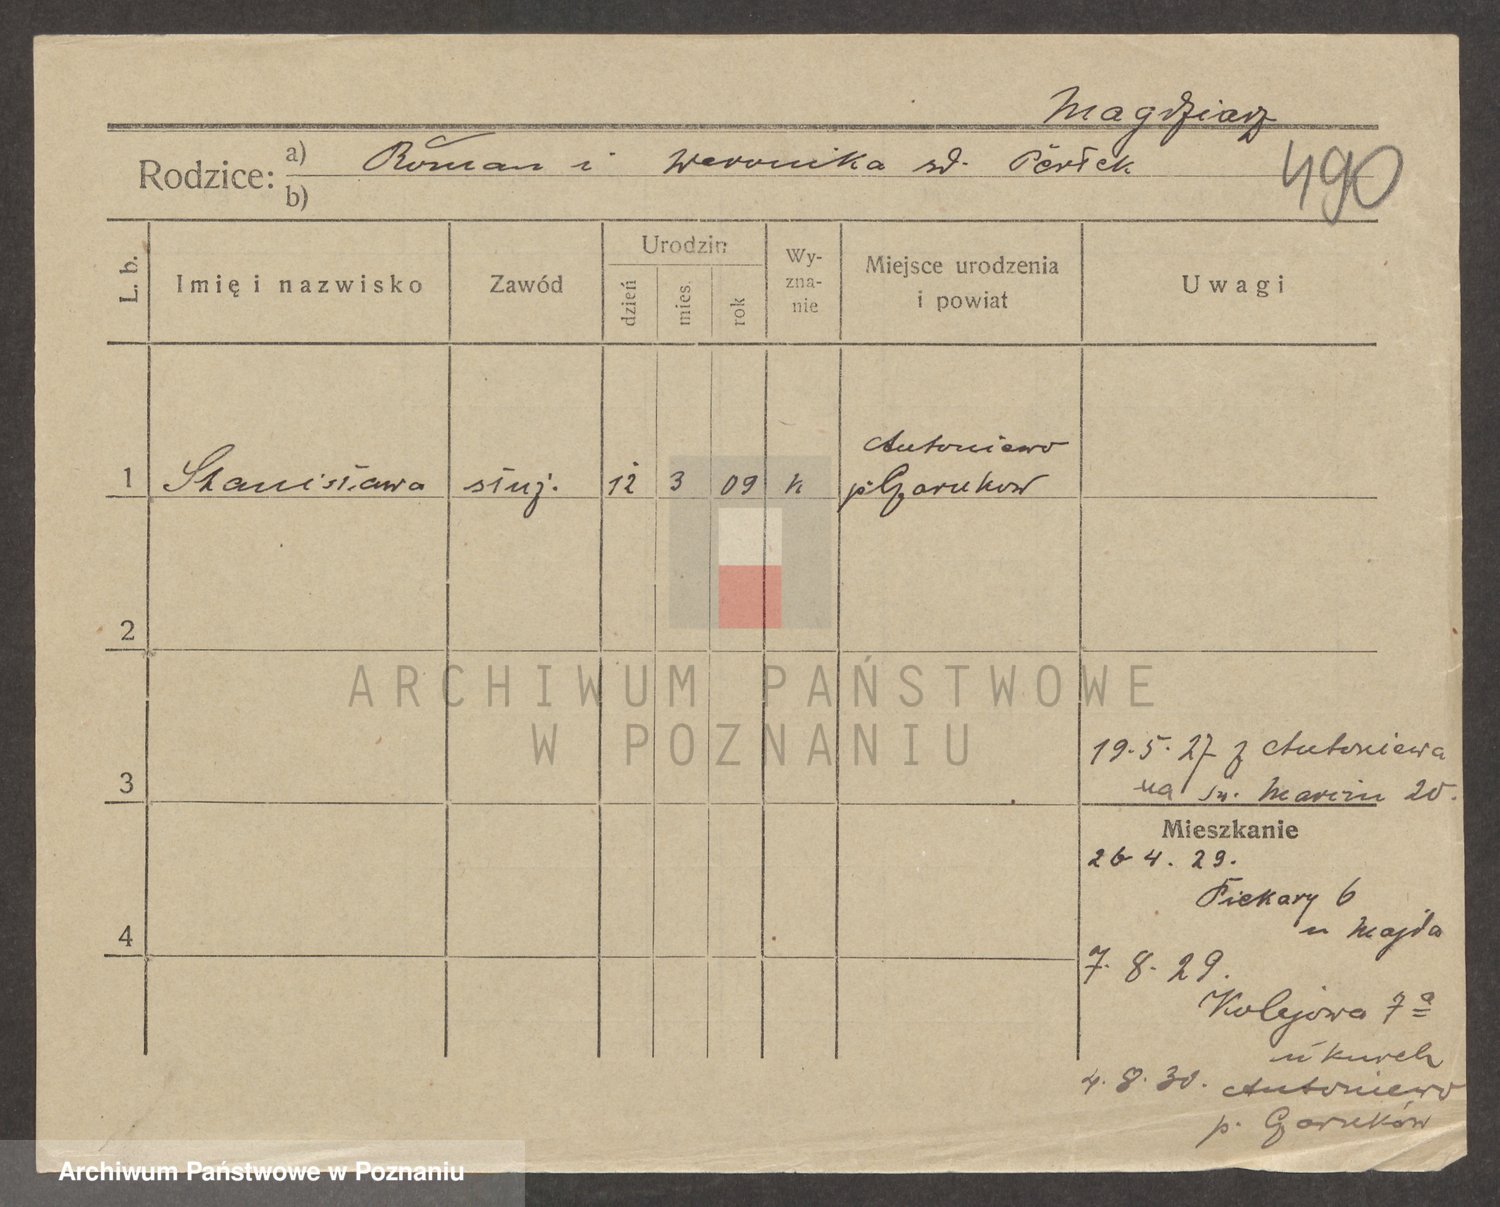 Magdziarz
490
Rodzice: a) Roman i Weronika
b)
L. b.
Imię i nazwisko
Zawód
Urodzin
dzień
mies.
rok
Wy-
zna-
nie
Miejsce urodzenia
i powiat
Uwagi
Antoniewo
1 Stanisława służ. 12 3 09 k p. Czarnków
2
ARCHIWUM PAŃSTWOWE
W POZNANIU
19.5.27 z Antoniewa
3
na św. Marcin 20.
Mieszkanie
26 4. 29.
Piekary 6
4
u Majda
7. 8. 29.
Kolejowa 7a
u
4. 8. 30. Antoniewo
p. Czarnków
Archiwum Państwowe w Poznaniu